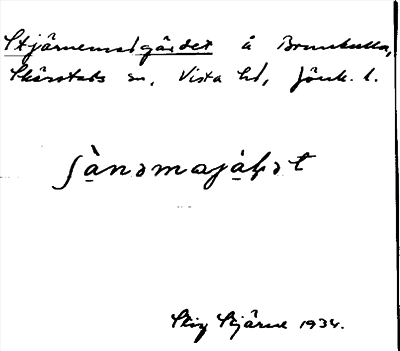 Stjärnemadgärdet å Brunnkulla,
Skärstads sn, Vista hd, Jönk. l.
ʃànəmajàḷət
Stig Stjärne 1934.